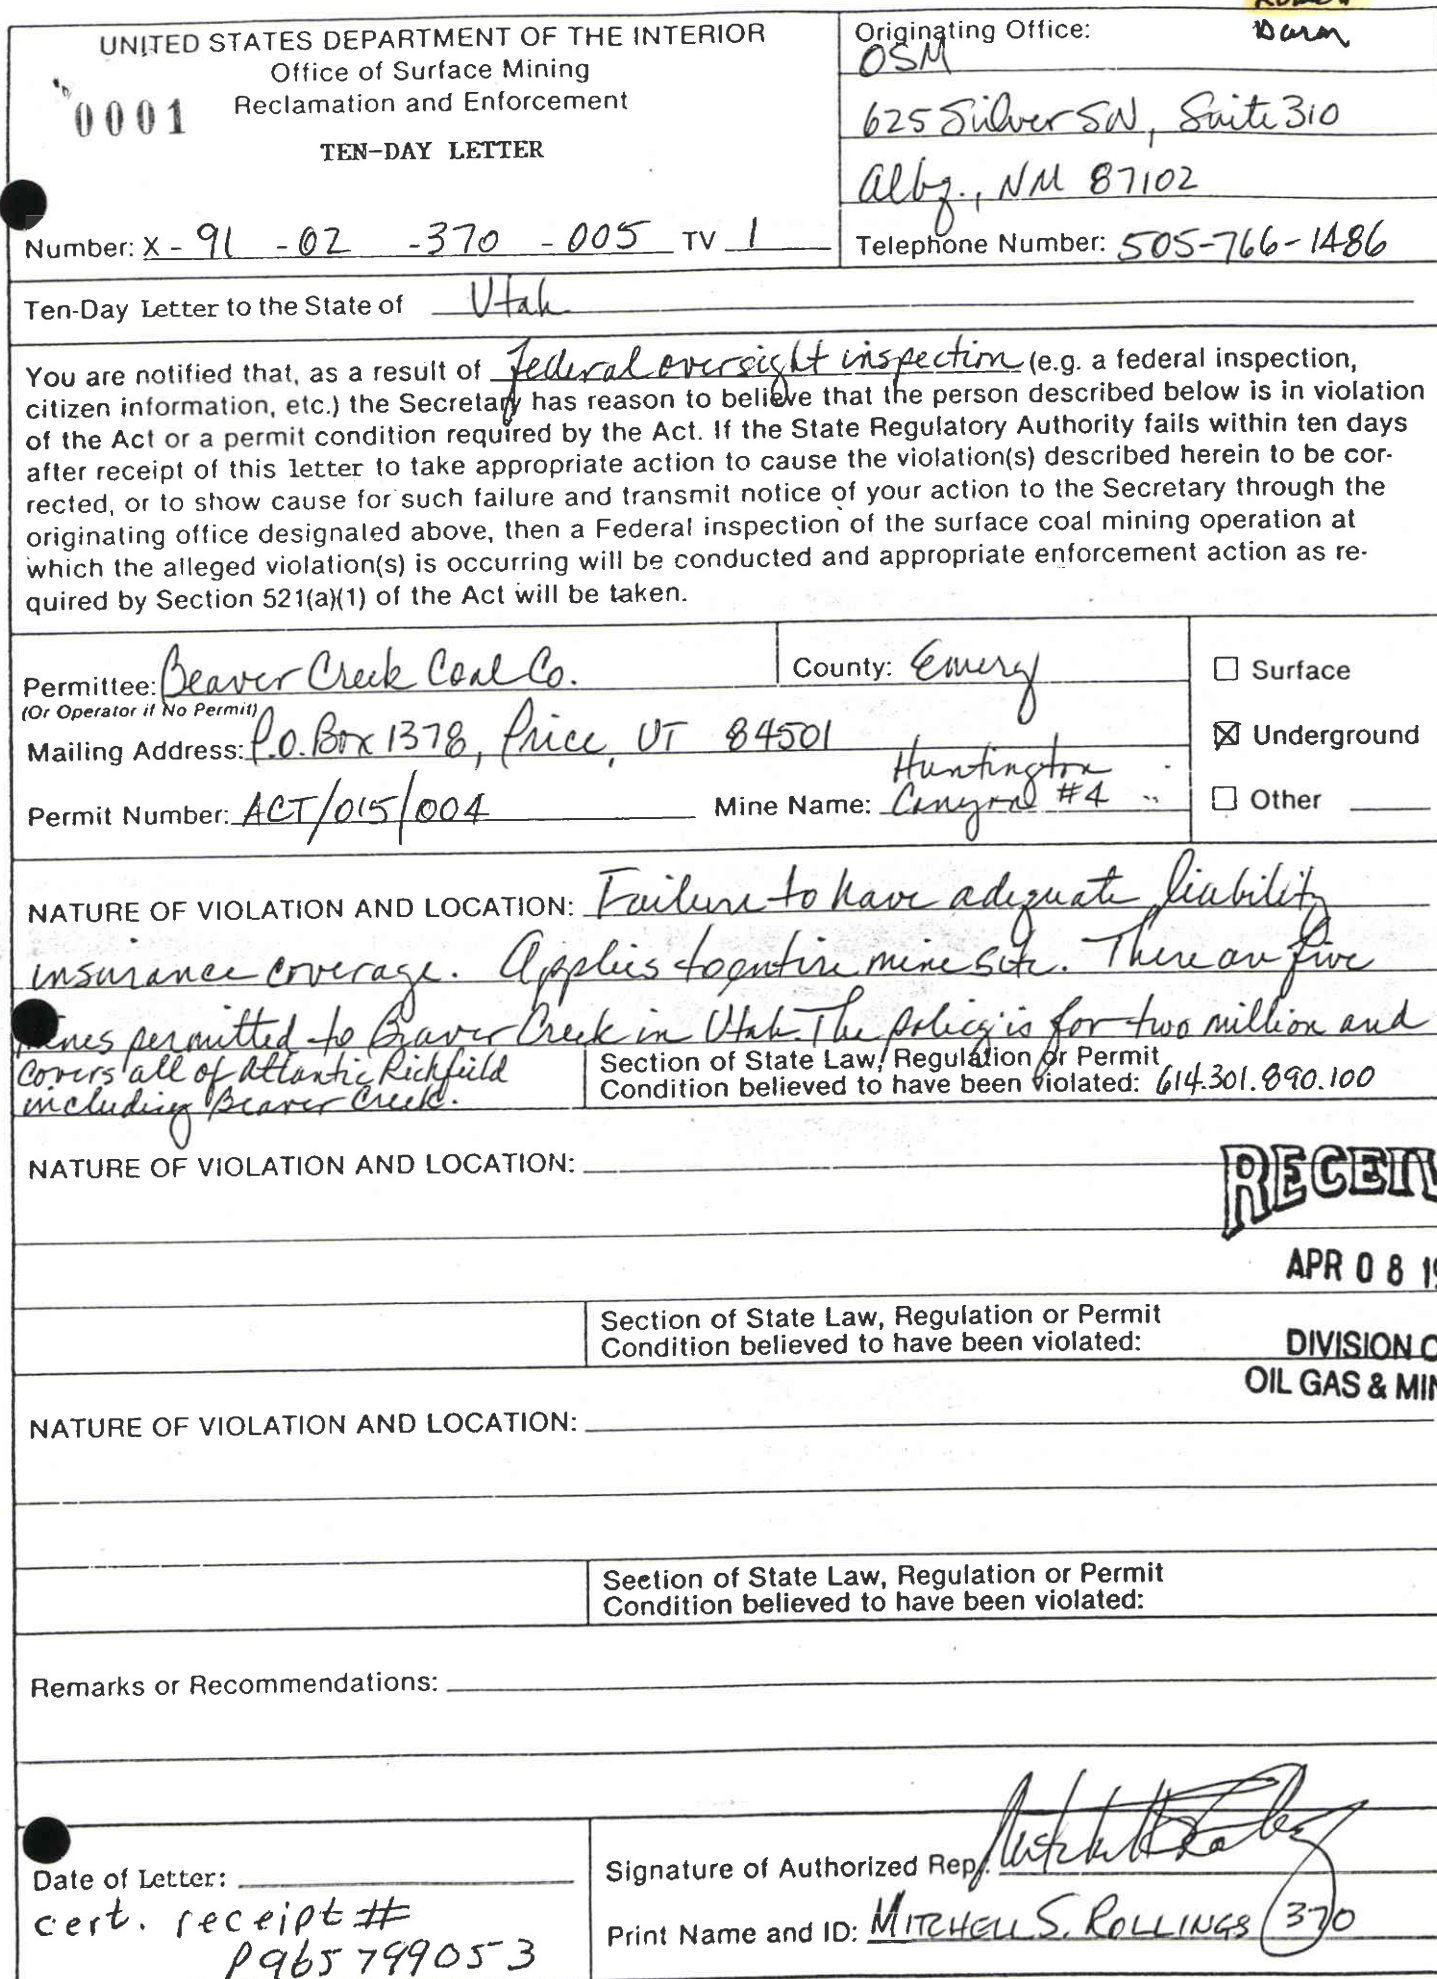 UNITED STATES DEPARTMENT OF THE INTERIOR
Office of Surface Mining
Reclamation and Enforcement
0001
TEN-DAY LETTER
Number: X - 91 - 02 - 370 - 005 TV 1
Originating Office:
OSM
625 Silver SW, Suite 310
Albq., NM 87102
Telephone Number: 505-766-1486
Ten-Day Letter to the State of Utah
You are notified that, as a result of federal oversight inspection (e.g. a federal inspection,
citizen information, etc.) the Secretary has reason to believe that the person described below is in violation
of the Act or a permit condition required by the Act. If the State Regulatory Authority fails within ten days
after receipt of this letter to take appropriate action to cause the violation(s) described herein to be cor-
rected, or to show cause for such failure and transmit notice of your action to the Secretary through the
originating office designaled above, then a Federal inspection of the surface coal mining operation at
which the alleged violation(s) is occurring will be conducted and appropriate enforcement action as re-
quired by Section 521(a)(1) of the Act will be taken.
Permittee: Beaver Creek Coal Co.
(Or Operator if No Permit)
County: Emery
Mailing Address: P.O. Box 1378, Price, UT 84501
Permit Number: ACT/015/004
Mine Name: Huntington
Canyon #4
Surface
Underground
Other
NATURE OF VIOLATION AND LOCATION: Failure to have adequate liability
insurance coverage. Applies to entire mine site. There are five
mines permitted to Beaver Creek in Utah. The policy is for two million and
covers all of Atlantic Richfield
including Beaver Creek.
Section of State Law, Regulation or Permit
Condition believed to have been violated: 614.301.890.100
NATURE OF VIOLATION AND LOCATION:
RECEIV
APR 08 19
Section of State Law, Regulation or Permit
Condition believed to have been violated:
DIVISION O
OIL GAS & MIN
NATURE OF VIOLATION AND LOCATION:
Section of State Law, Regulation or Permit
Condition believed to have been violated:
Remarks or Recommendations:
Date of Letter:
cert. receipt #
P965799053
Signature of Authorized Rep.
Print Name and ID: MITCHELL S. ROLLINGS (370